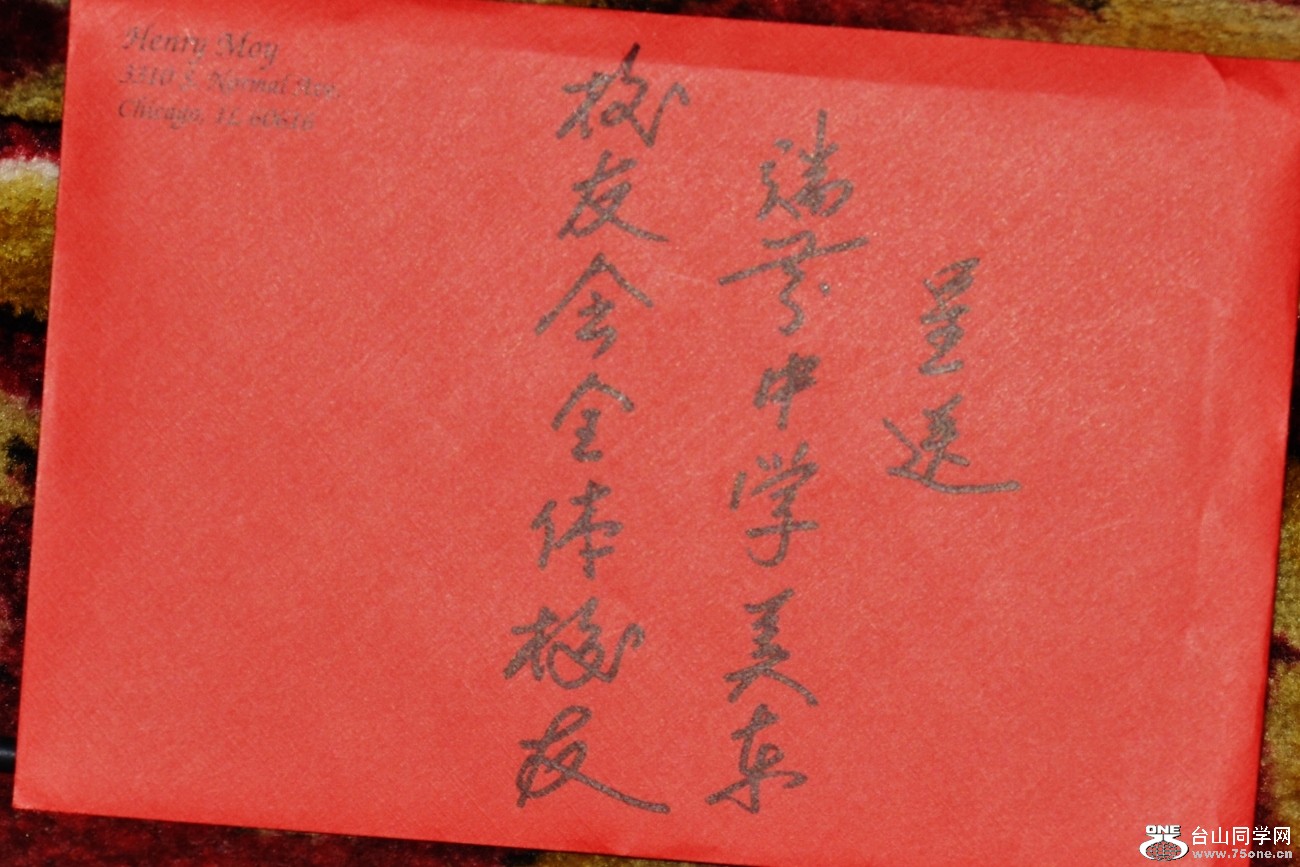 Henry Moy
3310 S. Normal Ave.
Chicago, IL 60616
呈送
瑞芬中学美东
校友会全体校友
ONE
台山同学网
www.75one.cn